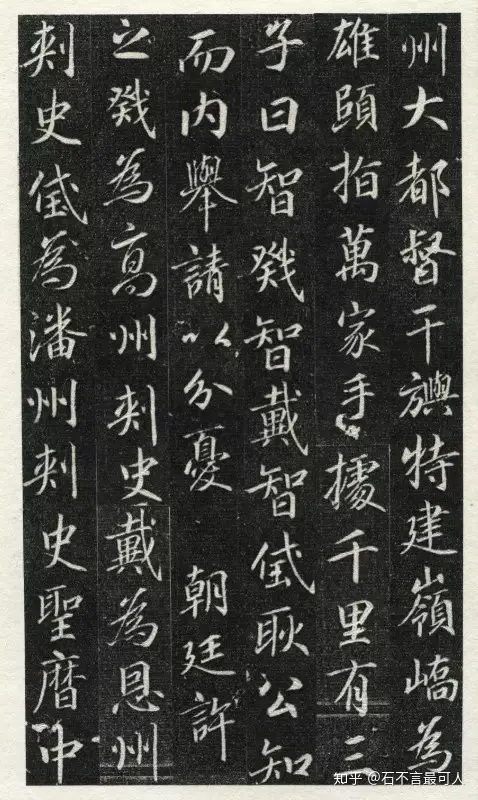 州大都督干旟特建嶺嶠為
雄頤指萬家手據千里有三
子曰智戣智戴智㑺耿公知
而内舉請以分憂 朝廷許
之戣為高州刺史戴為恩州
刺史㑺為潘州刺史聖曆中
知乎 @石不言最可人